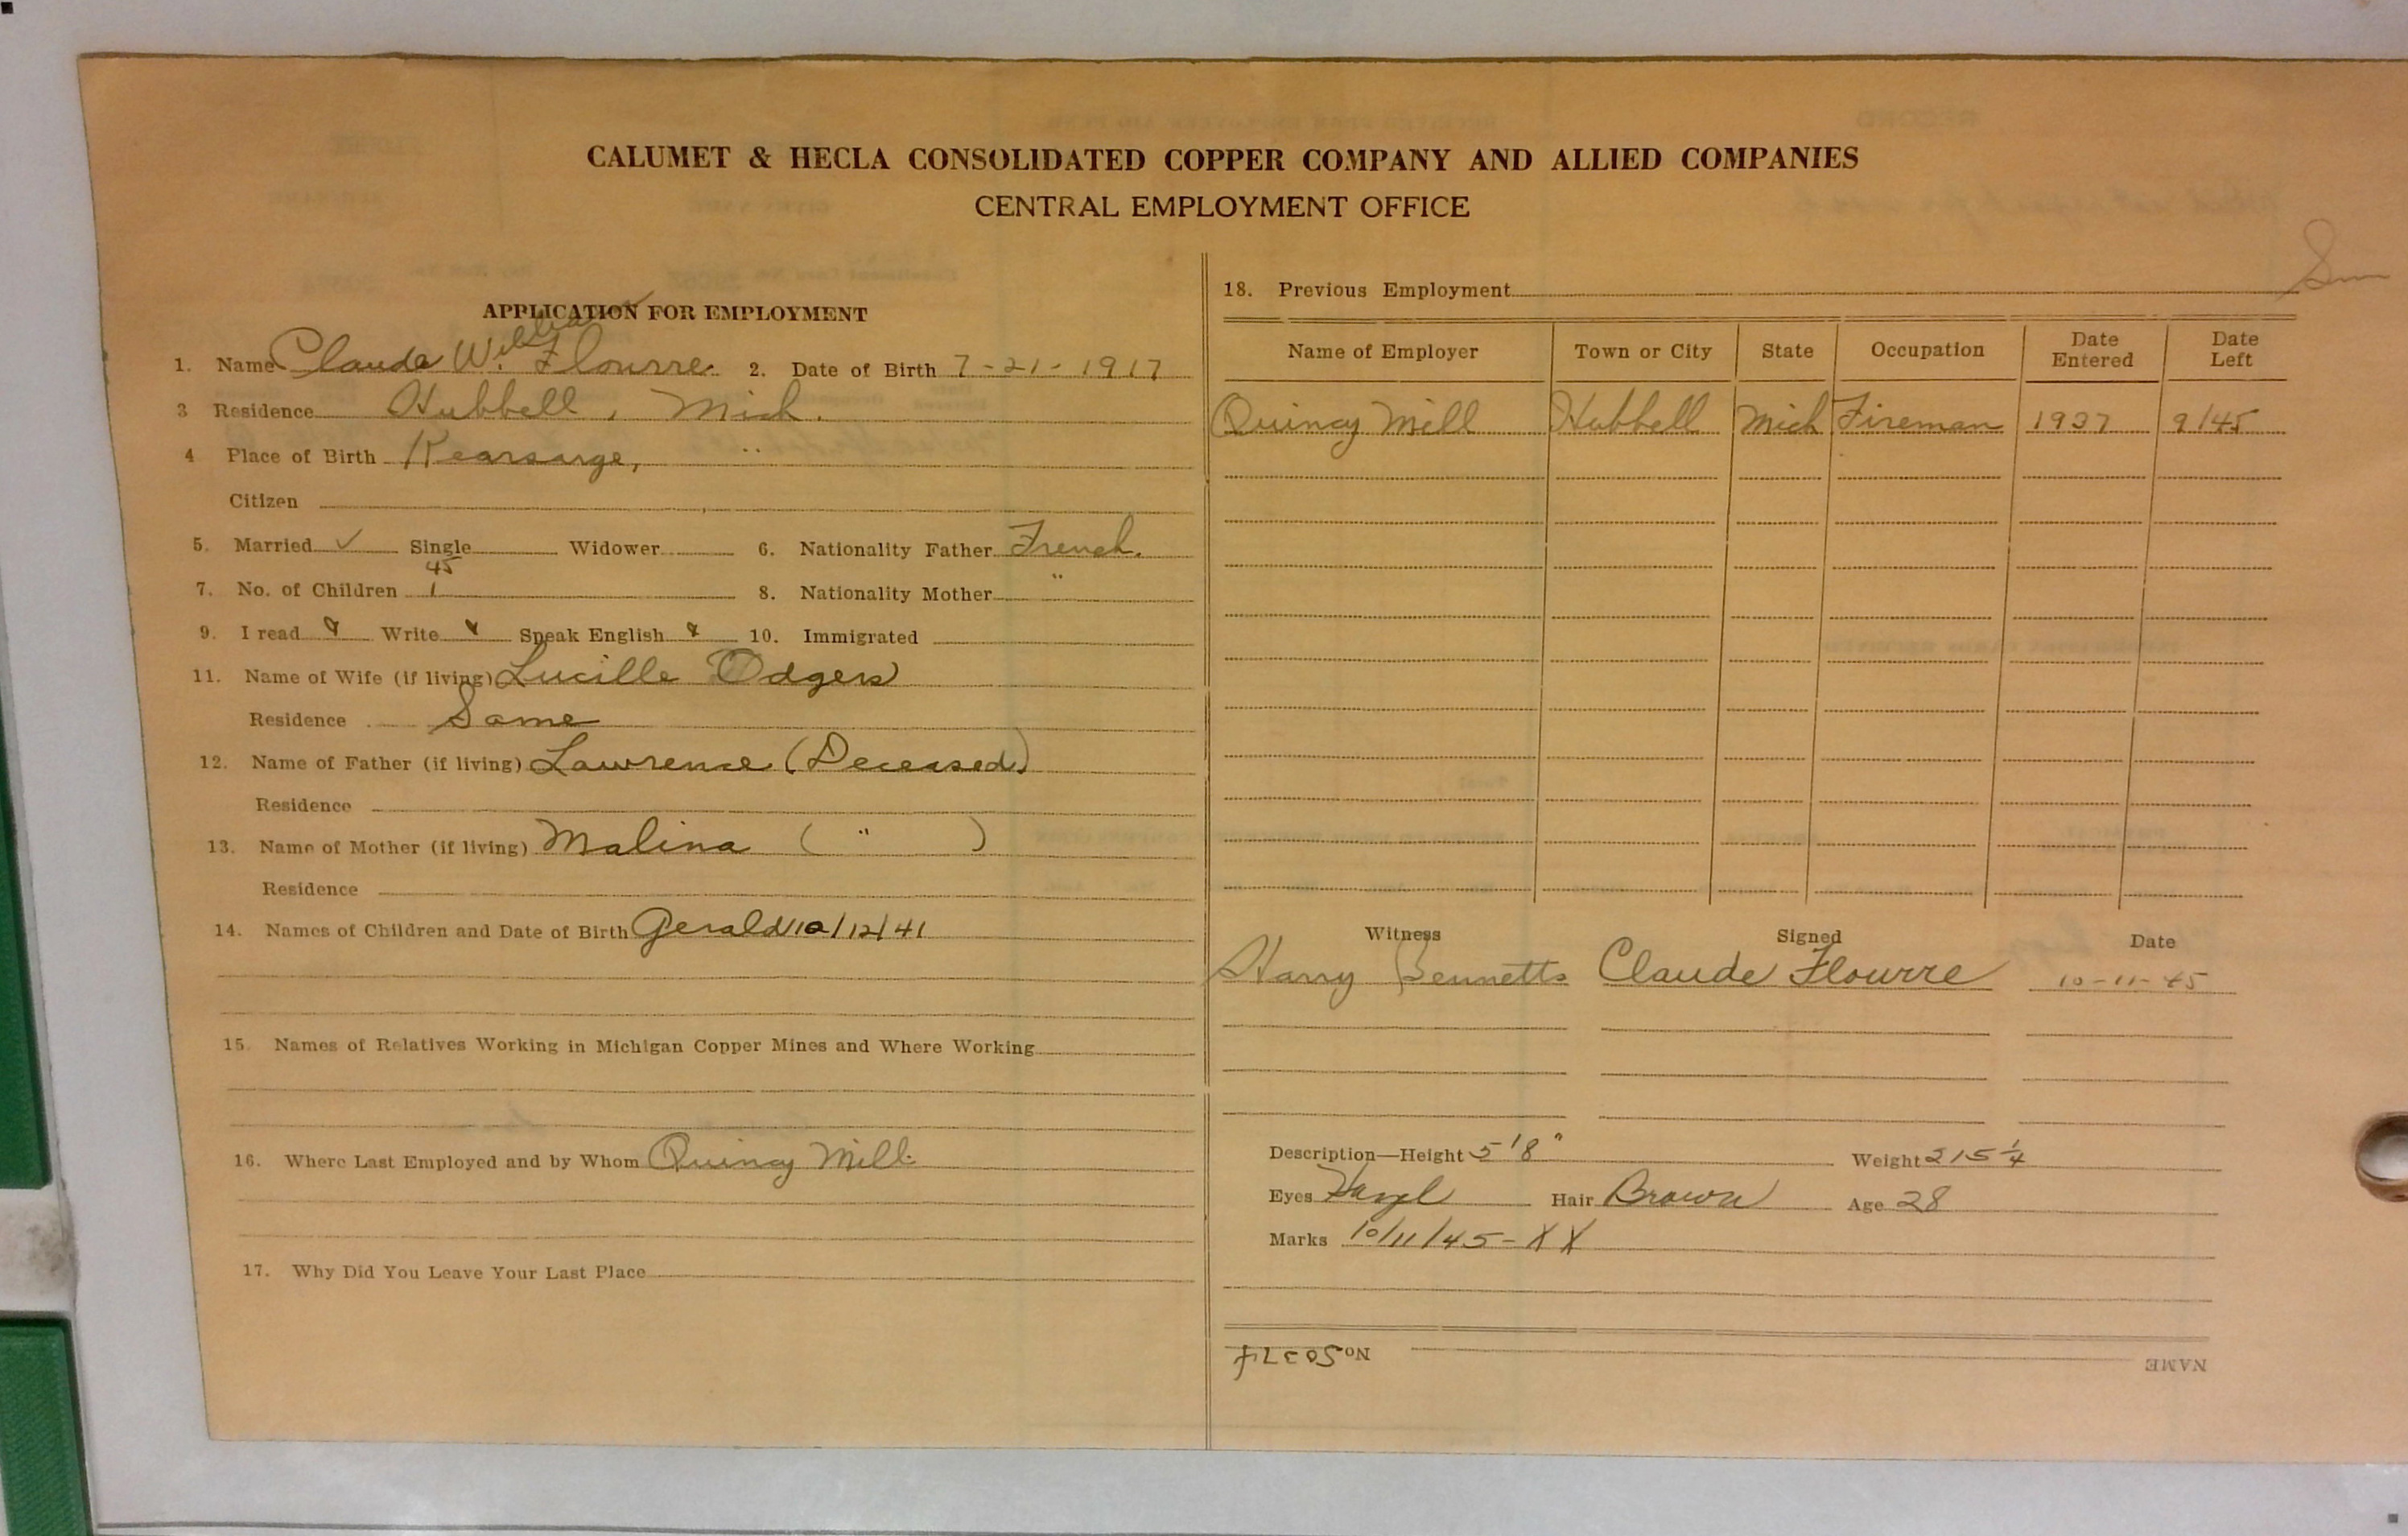 CALUMET & HECLA CONSOLIDATED COPPER COMPANY AND ALLIED COMPANIES
CENTRAL EMPLOYMENT OFFICE
APPLICATION FOR EMPLOYMENT
1. Name Claude William Flourre. 2. Date of Birth 7-21-1917
3 Residence Hubbell, Mich.
4 Place of Birth Kearsarge, "
Citizen
5. Married ✓ Single Widower 6. Nationality Father French.
45
7. No. of Children 1 8. Nationality Mother "
9. I read Write Speak English 10. Immigrated
11. Name of Wife (if living) Lucille Odgers
Residence Same
12. Name of Father (if living) Lawrence (Deceased)
Residence
13. Name of Mother (if living) Malina ( " )
Residence
14. Names of Children and Date of Birth Gerald 10/12/41
15. Names of Relatives Working in Michigan Copper Mines and Where Working
16. Where Last Employed and by Whom Quincy Mill
17. Why Did You Leave Your Last Place
18. Previous Employment
Name of Employer Town or City State Occupation Date Entered Date Left
Quincy Mill Hubbell Mich Fireman 1937 9/45
Witness Signed Date
Harry Bennetts Claude Flourre 10-11-45
Description—Height 5'8" Weight 215 1/4
Eyes Hazel Hair Brown Age 28
Marks 10/11/45 - XX
NAME No 50374